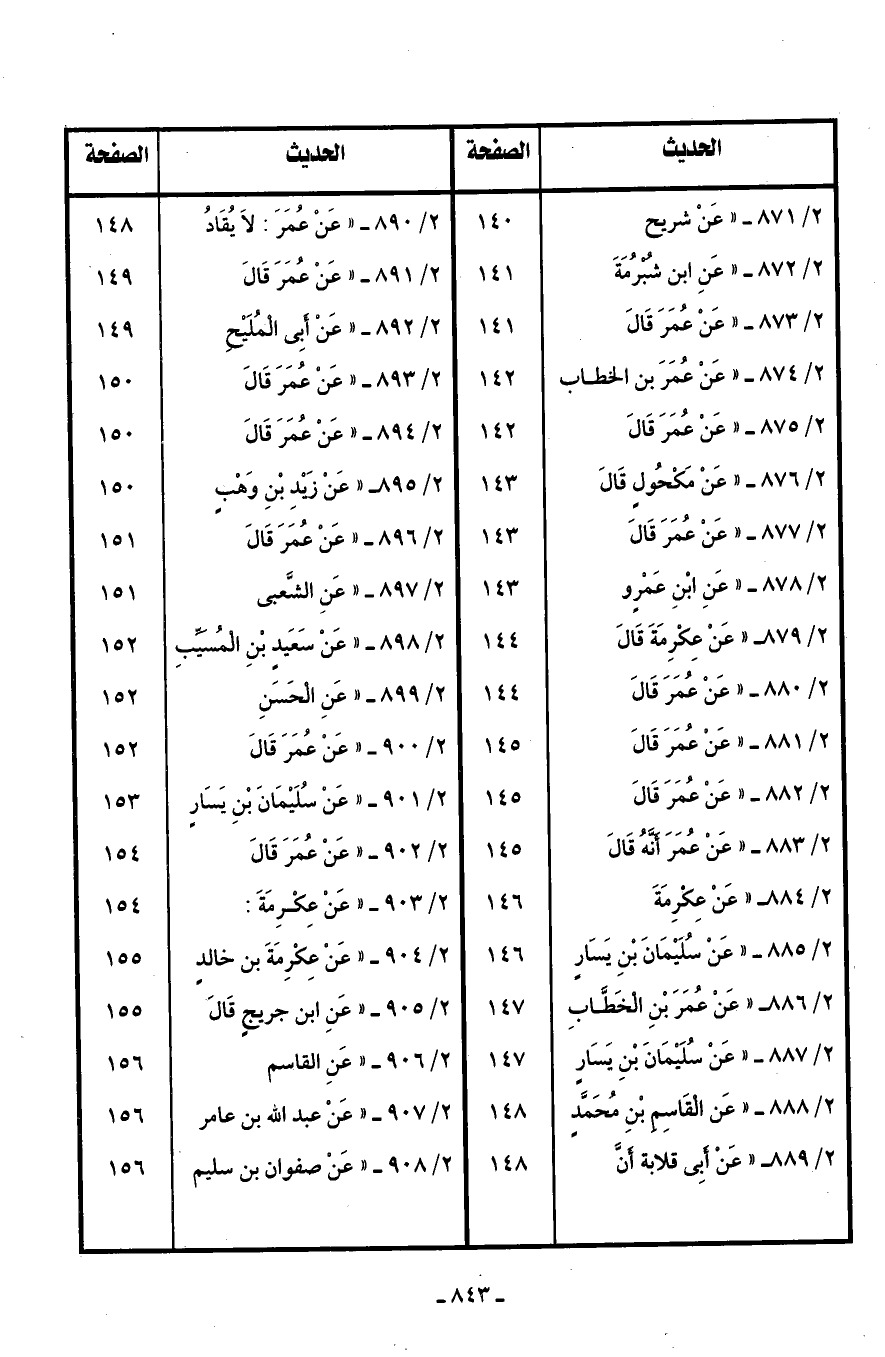 الحديث الصفحة الحديث الصفحة
٢/ ٨٧١ ـ « عَنْ شريح ١٤٠ ٢/ ٨٩٠ ـ « عَنْ عُمَرَ : لاَ يُقَادُ ١٤٨
٢/ ٨٧٢ ـ « عَنِ ابن شُبْرُمَةَ ١٤١ ٢/ ٨٩١ ـ « عَنْ عُمَرَ قَالَ ١٤٩
٢/ ٨٧٣ ـ « عَنْ عُمَرَ قَالَ ١٤١ ٢/ ٨٩٢ ـ « عَنْ أَبِى الْمُلَيْحِ ١٤٩
٢/ ٨٧٤ ـ « عَنْ عُمَرَ بن الخطاب ١٤٢ ٢/ ٨٩٣ ـ « عَنْ عُمَرَ قَالَ ١٥٠
٢/ ٨٧٥ ـ « عَنْ عُمَرَ قَالَ ١٤٢ ٢/ ٨٩٤ ـ « عَنْ عُمَرَ قَالَ ١٥٠
٢/ ٨٧٦ ـ « عَنْ مَكْحُولٍ قَالَ ١٤٣ ٢/ ٨٩٥ـ « عَنْ زَيْدِ بْنِ وَهْبٍ ١٥٠
٢/ ٨٧٧ ـ « عَنْ عُمَرَ قَالَ ١٤٣ ٢/ ٨٩٦ ـ « عَنْ عُمَرَ قَالَ ١٥١
٢/ ٨٧٨ ـ « عَنِ ابْنِ عَمْرٍو ١٤٣ ٢/ ٨٩٧ ـ « عَنِ الشَّعبى ١٥١
٢/ ٨٧٩ـ « عَنْ عِكْرِمَةَ قَالَ ١٤٤ ٢/ ٨٩٨ ـ « عَنْ سَعَيدٍ بْنِ الْمُسَيِّبِ ١٥٢
٢/ ٨٨٠ ـ « عَنْ عُمَرَ قَالَ ١٤٤ ٢/ ٨٩٩ ـ « عَنِ الحَسَنِ ١٥٢
٢/ ٨٨١ ـ « عَنْ عُمَرَ قَالَ ١٤٥ ٢/ ٩٠٠ ـ « عَنْ عُمَرَ قَالَ ١٥٢
٢/ ٨٨٢ ـ « عَنْ عُمَرَ قَالَ ١٤٥ ٢/ ٩٠١ ـ « عَنْ سُلَيْمَانَ بْنِ يَسَارٍ ١٥٣
٢/ ٨٨٣ ـ « عَنْ عُمَرَ أَنَّهُ قَالَ ١٤٥ ٢/ ٩٠٢ ـ « عَنْ عُمَرَ قَالَ ١٥٤
٢/ ٨٨٤ـ « عَنْ عِكْرِمَةَ ١٤٦ ٢/ ٩٠٣ ـ « عَنْ عِكْرِمَةَ : ١٥٤
٢/ ٨٨٥ ـ « عَنْ سُلَيْمَانَ بْنِ يَسَارٍ ١٤٦ ٢/ ٩٠٤ ـ « عَنْ عِكْرِمَةَ بن خالدٍ ١٥٥
٢/ ٨٨٦ـ « عَنْ عُمَرَ بْنِ الْخَطَّابِ ١٤٧ ٢/ ٩٠٥ ـ « عَنِ ابن جريجٍ قَالَ ١٥٥
٢/ ٨٨٧ ـ « عَنْ سُلَيْمَانَ بْنِ يَسَارٍ ١٤٧ ٢/ ٩٠٦ ـ « عَنِ القاسم ١٥٦
٢/ ٨٨٨ ـ « عَنِ الْقَاسِمِ بْنِ مُحَمَّدٍ ١٤٨ ٢/ ٩٠٧ ـ « عَنْ عبد الله بن عامر ١٥٦
٢/ ٨٨٩ـ « عَنْ أَبِى قلابة أَنَّ ١٤٨ ٢/ ٩٠٨ ـ « عَنْ صفوان بن سليم ١٥٦
ـ ٨٤٣ ـ